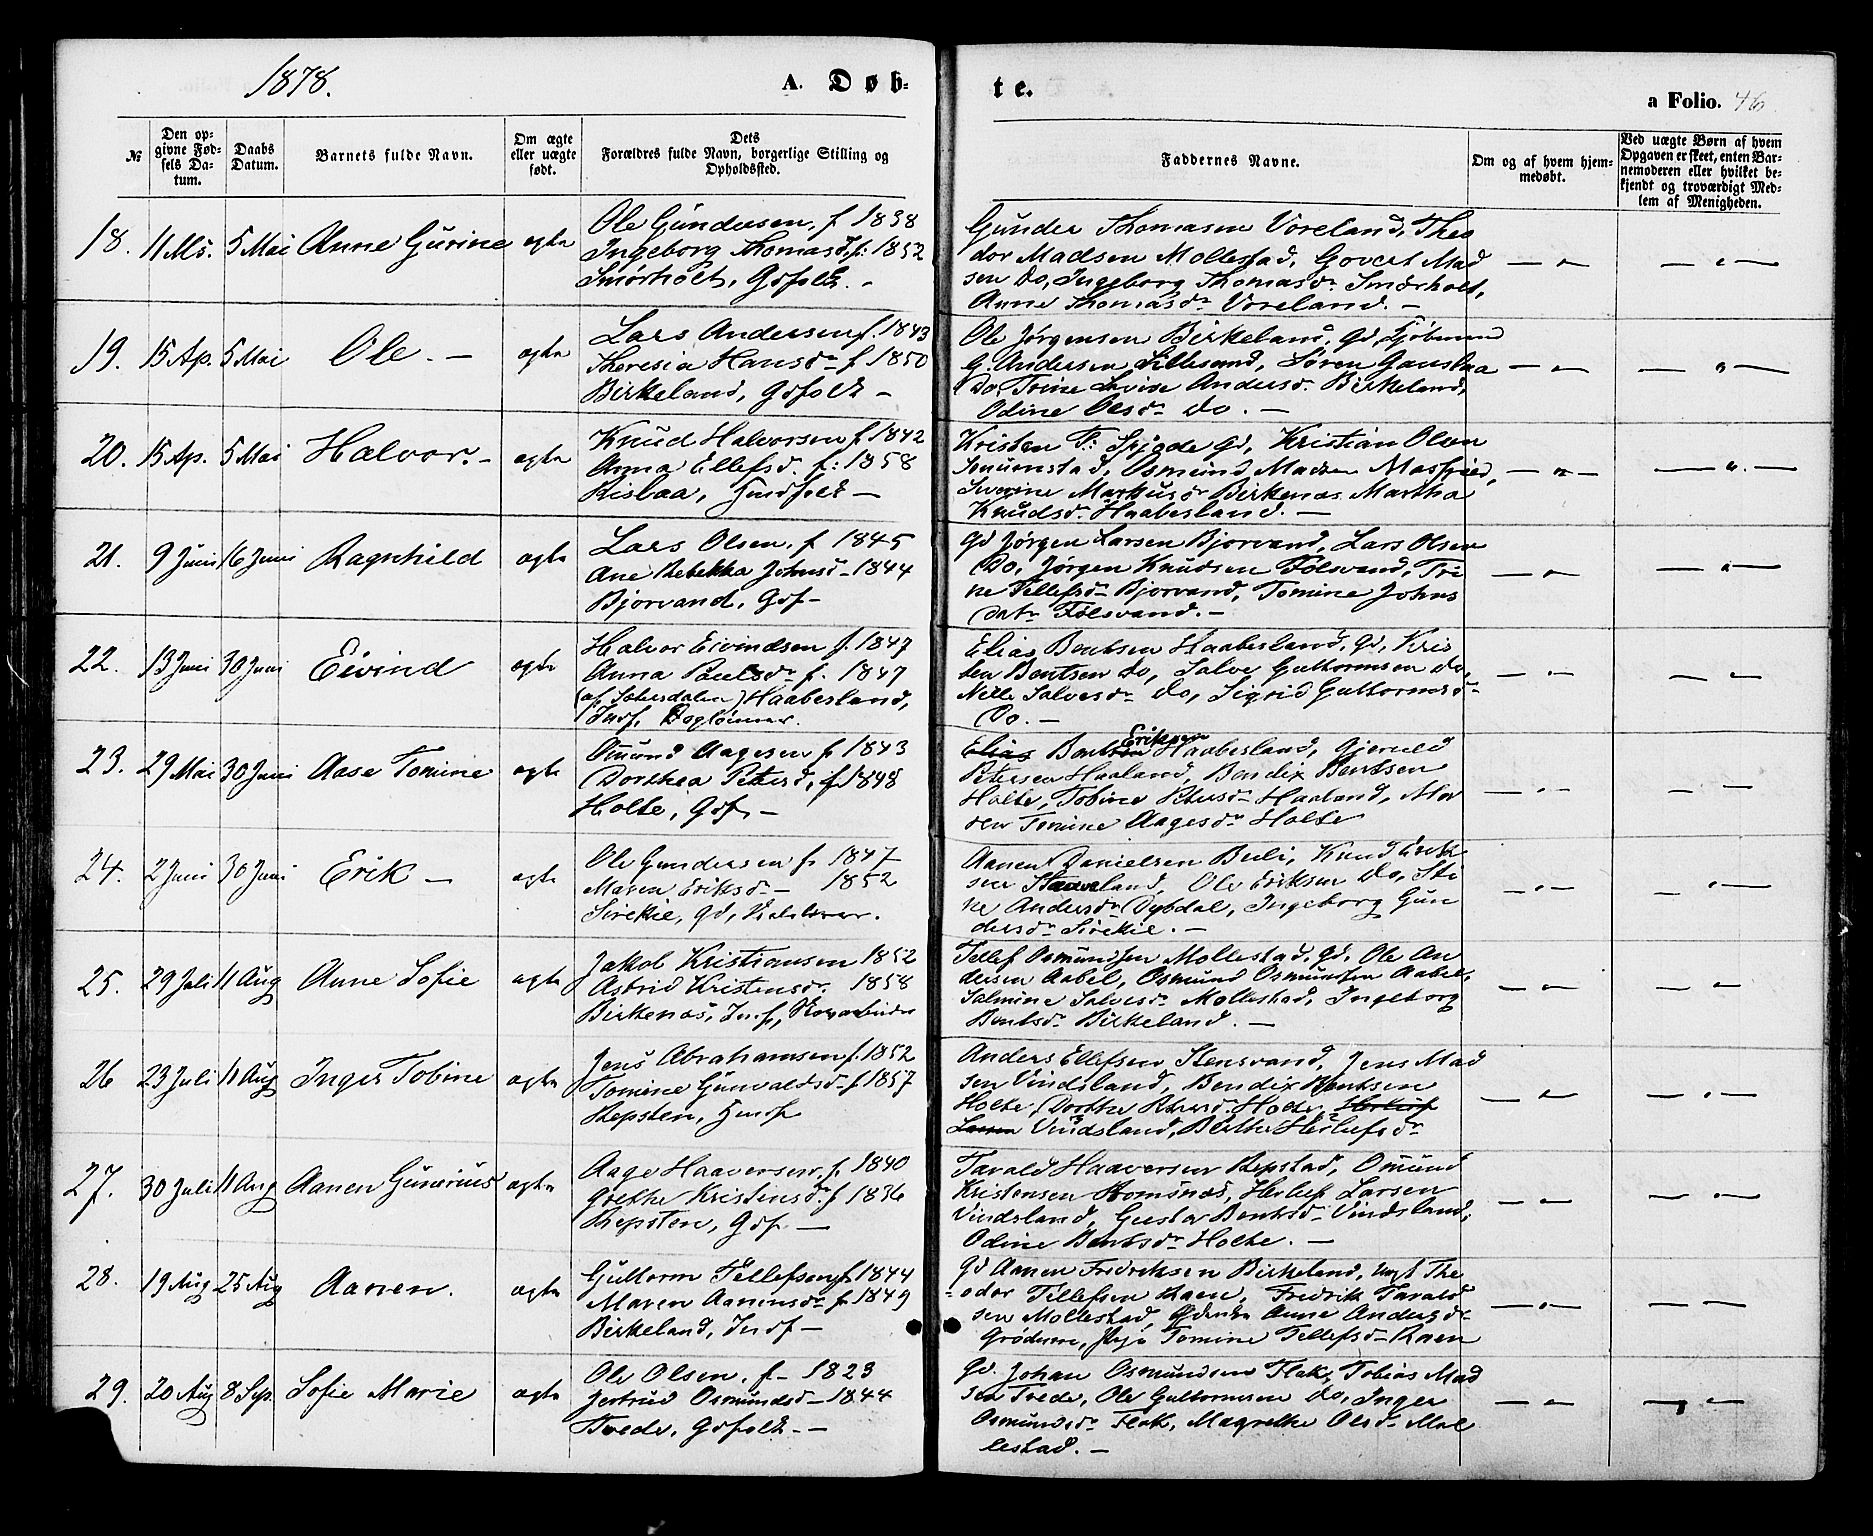 1878.
A. Døb-
te.
a Folio. 46
№
Den op-
givne Fød-
sels Da-
tum.
Daabs
Datum.
Barnets fulde Navn.
Om ægte
eller uægte
født.
Dets
Forældres fulde Navn, borgerlige Stilling og
Opholdssted.
Faddernes Navne.
Om og af hvem hjem-
medøbt.
Ved uægte Børn af hvem
Opgaven er skeet, enten Bar-
nemoderen eller hvilket be-
kjendt og troværdigt Med-
lem af Menigheden.
18. 11 Ms. 5 Mai Anne Gurine ægte
Ole Gundersen, f 1838
Ingeborg Thomasd. f: 1852
Smørholt, Gdfolk. -
Gunder Thomasen Voreland, Theo
dor Madsen Mollestad, Govert Mad
sen Do, Ingeborg Thomasdr Smørholt,
Anne Thomasdr Voreland. -
19. 15 Ap. 5 Mai Ole. - ægte
Lars Andersen f. 1843
Theresia Hansdr f 1850
Birkeland, Gdfolk -
Ole Jørgensen Birkeland, Gd, Kjøbmand
G. Andersen Lillesand, Søren
Do, Trine Lovise Andersd. Birkeland,
Odine Olsdr Do. -
20. 15 Ap. 5 Mai Halvor. - ægte
Knud Halvorsen f 1842
Anna Ellefsd. f: 1858
Risbaa, Husfolk -
Kristen T: Gd, Kristian Olsen
Osmund Madsen
Severine Markusdr Birkenæs Martha
Knudsdr Haabesland. -
21. 9 Juni 16 Juni Ragnhild ægte
Lars Olsen, f 1845
Ane Rebekka Johnsd - 1844
Bjorvand, Gdf -
Gd Jørgen Larsen Bjorvand, Lars Olsen
Do, Jørgen Knudsen Følsvand, Tri
ne Tellefsdr Bjorvand, Tomine Johns
datr Følsvand. -
22. 13 Juni 30 Juni Eivind ægte
Halvor Eivindsen f. 1847
Anna Paulsdr f. 1847
(af Sætersdalen) Haabesland,
Indf, Daglønner.
Elias Bentsen Haabesland, Gd, Kris
ten Bentsen Do, Salve Guttormsen Do,
Nille Salvesdr Do, Sigrid Guttormsd-
Do. -
23. 29 Mai 30 Juni Aase Tomine ægte
Omund Aagesen f 1843
Dorthea Petersd, f 1848
Holte, Gdf, -
Eriksen
Elias Bentsen Haabesland, Gjeruld
Petersen Haaland, Bendix Bentsen
Holte, Tobine Petersdr Haaland, Ma
ren Tomine Aagesdr Holte
24. 2 Juni 30 Juni Erik - ægte
Ole Gundersen f. 1847
Maren Eriksd - 1852
Sirekile, Gd,
Aanen Danielsen Beli, Knud Erik
sen Staveland, Ole Eriksen Do, Sti
ne Andersdr Dybdal, Ingeborg Gun
dersdr Sirekile. -
25. 29 Juli 11 Aug Anne Sofie ægte
Jakob Kristiansen 1852
Astrid Kristensd. 1858
Birkenæs, Indf,
Tellef Osmundsen Mollestad, Gd, Ole An
dersen Aabel, Osmund Osmundsen Aabel,
Salmine Salvesdr Mollestad, Ingeborg
Bentsdr Birkeland. -
26 23 Juli 11 Aug Inger Tobine ægte
Jens Abrahamsen f. 1852
Tomine Gunvaldsd - f 1857
Repsten, Husf
Anders Ellefsen Stensvand, Jens Mad
sen Vindsland, Bendix Bentsen
Holte, Dorthe Petersd. Holte, Herluf
Larsen Vindsland, Berthe Herlufsdr
27. 30 Juli 11 Aug Aanen Gunerius ægte
Aage Haaversen, f. 1840
Grethe Kristensdr. f 1836
Repsten, Gdf. -
Tarald Haaversen Repstad, Omund
Kristensen Herluf Larsen
Vindsland, Gusta Bentsd. Vindsland,
Odine Bentsdr Holte. -
28. 19 Aug 25 Aug Aanen. ægte
Guttorm Tellefsen f. 1844
Maren Aanensdr f 1849
Birkeland, Indf -
Gd Aanen Fredriksen Birkeland, Ungk The
- odor Tellefsen Raen, Fredrik Tarald
sen Mollestad, Anne Andersdr
Tomine Tellefsdr Raen
29. 20 Aug 8 Sep. Sofie Marie ægte
Ole Olsen, f - 1823
Jertrud Osmundsd - 1844
Tvede, Gdfolk - -
Gd. Johan Osmundsen Flak, Tobias Mad
sen Tvede, Ole Guttormsen Do, Inger
Osmundsdr Flak, Magrethe Olsdr Mol
lestad. -